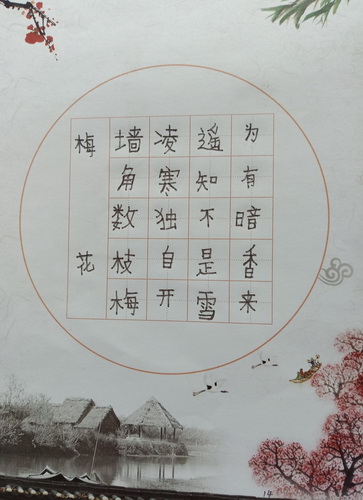 梅花
墙角数枝梅
凌寒独自开
遥知不是雪
为有暗香来
14